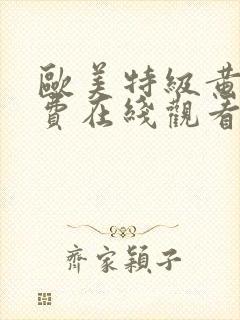 歐美特級黃
費在綫觀看
齊家穎子